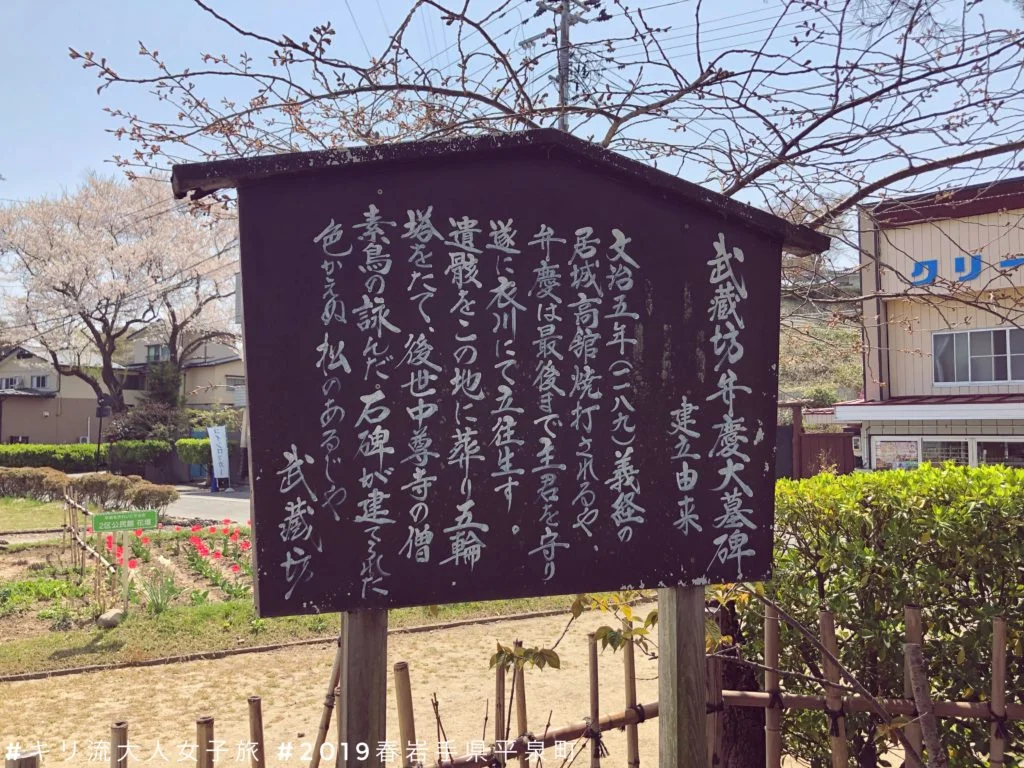 武蔵坊弁慶大墓碑
建立由来
文治五年(一一八九)義経の
居城高館焼打されるや、
弁慶は最後まで主君を守り
遂に衣川にて立往生す。
遺骸をこの地に葬り五輪
塔をたて、後世中尊寺の僧
素鳥の詠んだ石碑が建てられた。
色かえぬ松のあるじや
武蔵坊
クリー
2区公民館 花壇
#キリ流大人女子旅 #2019春岩手県平泉町